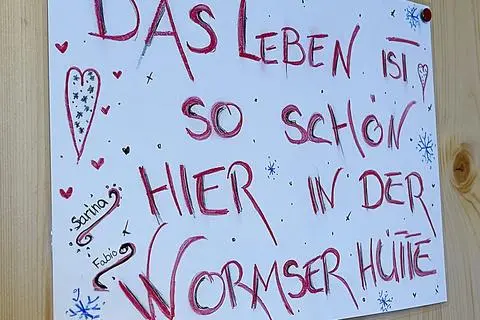 DAS LEBEN IST
SO SCHÖN
HIER IN DER
WORMSER HÜTTE
Sarina
Fabio